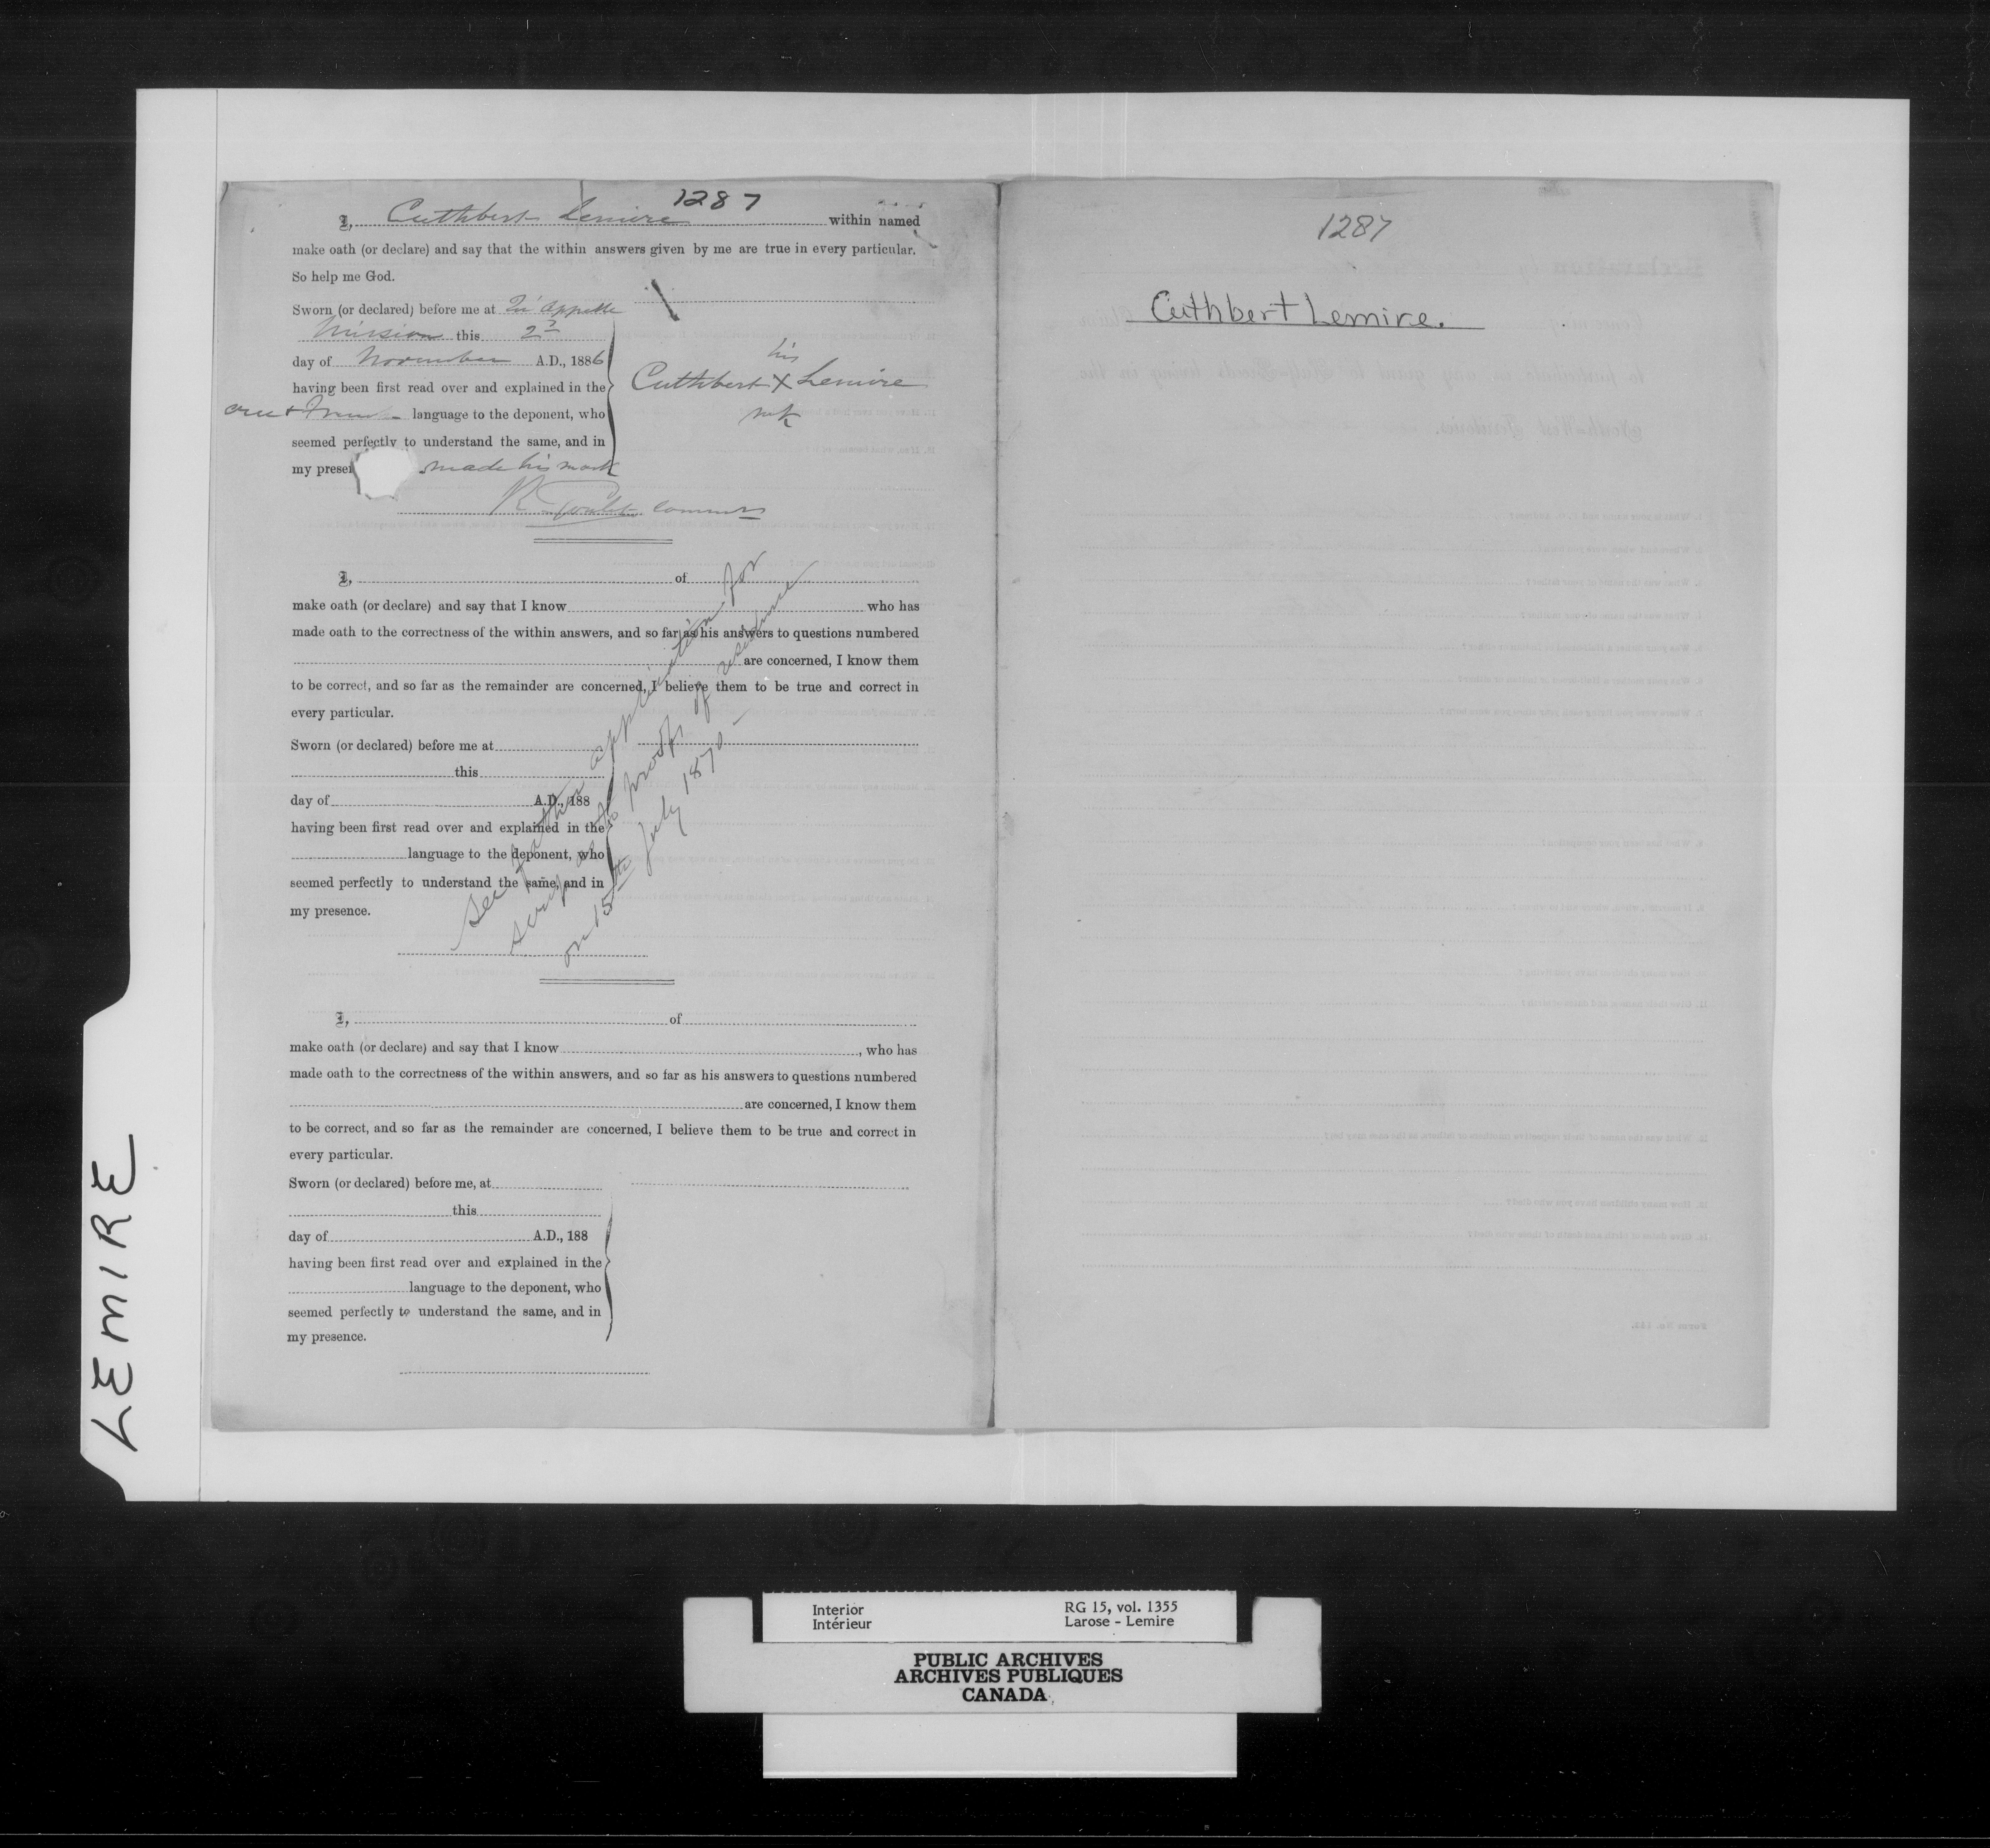 1287
I, Cuthbert Lemire within named
make oath (or declare) and say that the within answers given by me are true in every particular.
So help me God.
Sworn (or declared) before me at Qu'appelle
Mission this 2d
day of November A.D., 1886
having been first read over and explained in the
cree & French language to the deponent, who
seemed perfectly to understand the same, and in
my presen made his mark
his
Cuthbert X Lemire
mk
R Goulet Commrs
I, of
make oath (or declare) and say that I know who has
made oath to the correctness of the within answers, and so far as his answers to questions numbered
are concerned, I know them
to be correct, and so far as the remainder are concerned, I believe them to be true and correct in
every particular.
Sworn (or declared) before me at
this
day of A.D., 188
having been first read over and explained in the
language to the deponent, who
seemed perfectly to understand the same, and in
my presence.
See further application for
scrip as to proofs of residence
on 15th July 1870 -
I, of
make oath (or declare) and say that I know , who has
made oath to the correctness of the within answers, and so far as his answers to questions numbered
are concerned, I know them
to be correct, and so far as the remainder are concerned, I believe them to be true and correct in
every particular.
Sworn (or declared) before me, at
this
day of A.D., 188
having been first read over and explained in the
language to the deponent, who
seemed perfectly to understand the same, and in
my presence.
1287
Cuthbert Lemire.
LEMIRE
Interior
Intérieur
RG 15, vol. 1355
Larose - Lemire
PUBLIC ARCHIVES
ARCHIVES PUBLIQUES
CANADA